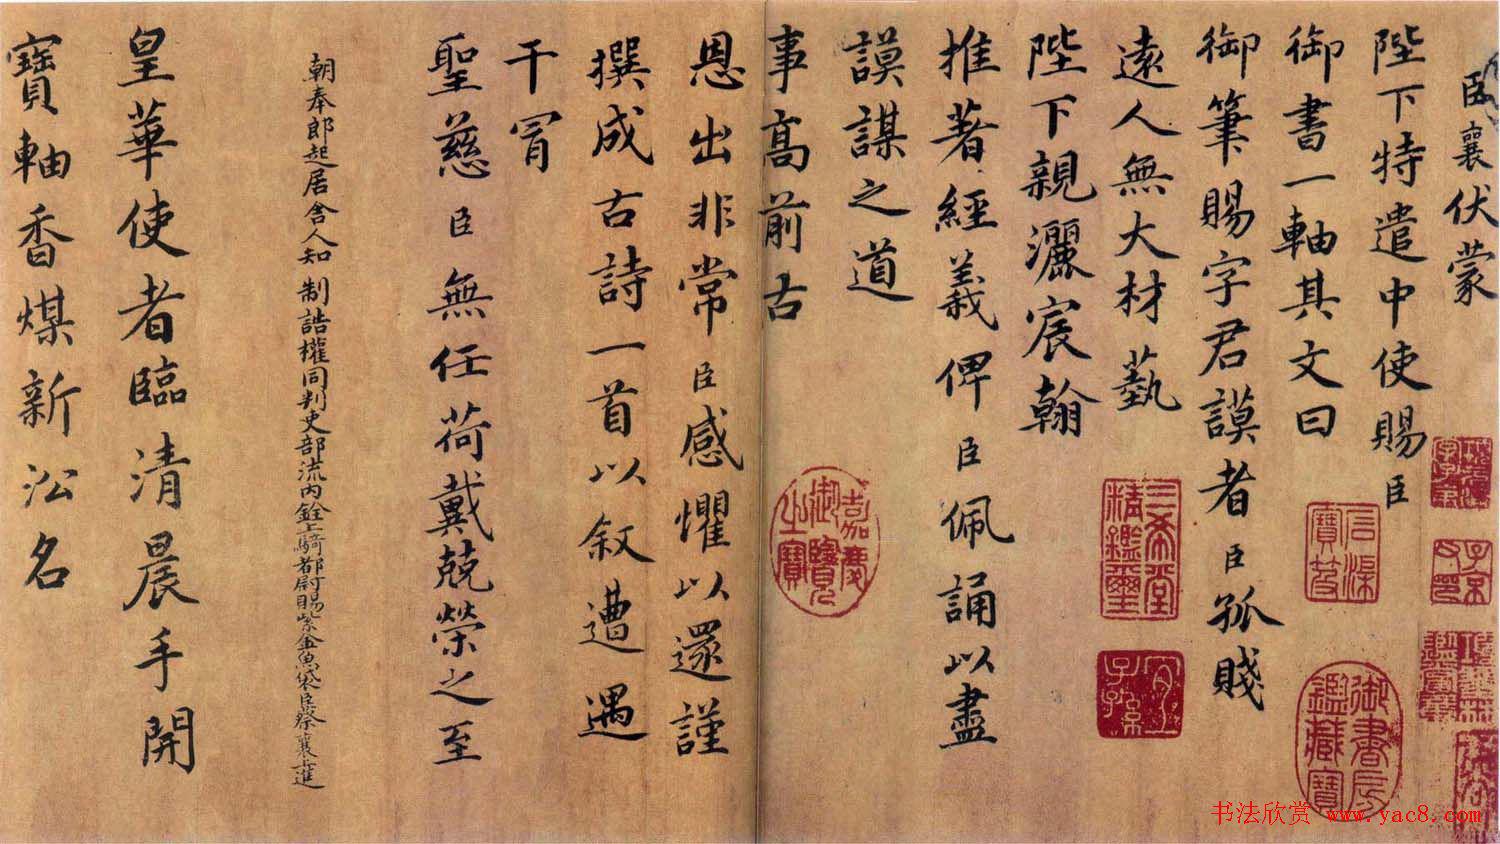 臣襄伏蒙
陛下特遣中使賜臣
御書一軸其文曰
御筆賜字君謨者臣孤賤
遠人無大材藝
陛下親灑宸翰
推著經義俾臣佩誦以盡
謨謀之道
事高前古
恩出非常臣感懼以還謹
撰成古詩一首以叙遭遇
干冒
聖慈臣無任荷戴兢榮之至
朝奉郎起居舍人知制誥權同判吏部流内銓上騎都尉賜紫金魚袋臣蔡襄上進
皇華使者臨清晨手開
寶軸香煤新沿名
嘉慶御覽之寶
三希堂精鑑璽
宜子孫
御書房鑑藏寶
书法欣赏 www.yac8.com